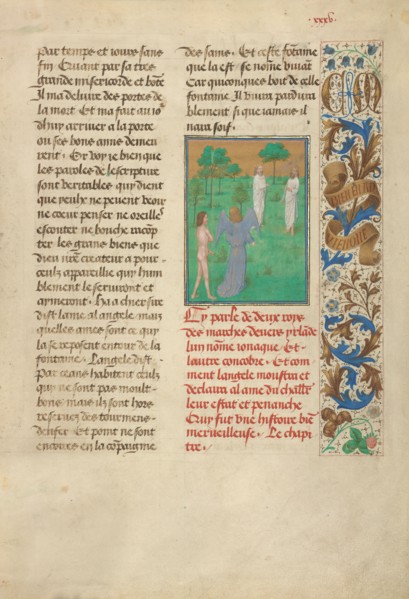 .xxxv.
par temps et jours sans
fin. Cuiant par sa tres
grande misericorde et bote
Il ma delivre des portes de
la mort. Et ma fait au io
dhuy arriver a la porte
ou ses bons amis demeu
rent. Et voy ie bien que
les paroles de lescripture
sont veritables qui dient
que yeulx ne peuent veoir
ne coeur penser ne oreille
escouter ne bouche racop
ter les grans biens que
dieu nre createur a pour
ceulz appareillie qui hum
blement le serviront et
aymeront. Ha a chier sire
dist lame al angele mais
quelles ames sont ce qui
la se reposent entour de la
fontaine. Langele dist.
Par ceans habitent ceulz
qui ne sont pas moult
bons mais ilz sont hors
reservez des tourmens
denfer. Et point ne sont
encores en la compaignie
des sains. Et ceste fontaine
que la est se nome vivant
Car quiconques boit de celle
fontaine Il vivra pardura
blement si que iamais il
naura soif.
Cy parle de deux roys
des marches devers yrlade
lun nome conaque Et
lautre concobre. Et com
ment langele monstra et
declaira al ame du challr
leur estat et penanche
Quy fut une histoire bie
merveilleuse. Le chapi
tre.
CM
BIEN EN
AVIENGNE